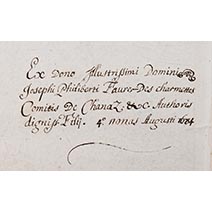 Ex Dono Illustrissimi Domini
Josephi Philiberti Favre-Des charmettes
Comitis De Chanaz, &c Authoris
digniss. Filij. 4º nonas Augusti